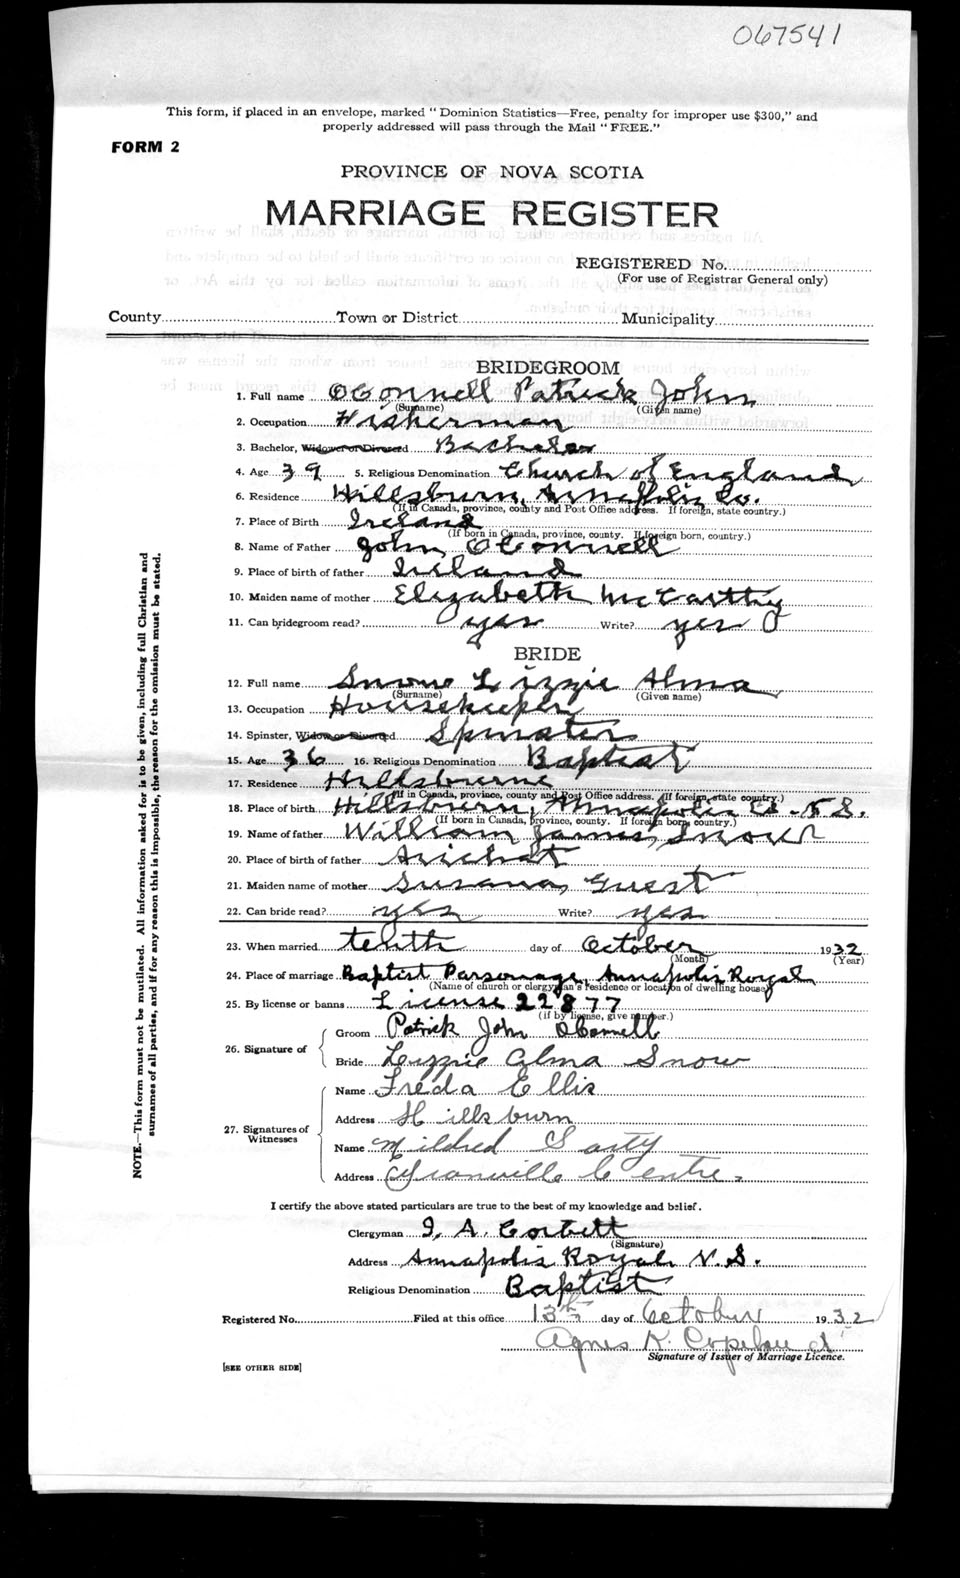 067541
This form, if placed in an envelope, marked "Dominion Statistics—Free, penalty for improper use $300," and
properly addressed will pass through the Mail "FREE."
FORM 2
PROVINCE OF NOVA SCOTIA
MARRIAGE REGISTER
REGISTERED No.
(For use of Registrar General only)
County Town or District Municipality
BRIDEGROOM
1. Full name OConnell Patrick John
(Surname) (Given name)
2. Occupation Fisherman
3. Bachelor, Widower or Divorced Bachelor
4. Age 39 5. Religious Denomination Church of England
6. Residence Hillsburn, Annapolis Co.
(If in Canada, province, county and Post Office address. If foreign, state country.)
7. Place of Birth Ireland
(If born in Canada, province, county. If foreign born, country.)
8. Name of Father John OConnell
9. Place of birth of father Ireland
10. Maiden name of mother Elizabeth McCarthy
11. Can bridegroom read? yes Write? yes
BRIDE
12. Full name Snow Lizzie Alma
(Surname) (Given name)
13. Occupation Housekeeper
14. Spinster, Widow or Divorced Spinster
15. Age 36 16. Religious Denomination Baptist
17. Residence Hillsburne
(If in Canada, province, county and Post Office address. If foreign, state country.)
18. Place of birth Hillsburn, Annapolis Co. N.S.
(If born in Canada, province, county. If foreign born, country.)
19. Name of father William James Snow
20. Place of birth of father Arichat
21. Maiden name of mother Susana Guest
22. Can bride read? yes Write? yes
23. When married tenth day of October 1932
(Month) (Year)
24. Place of marriage Baptist Parsonage, Annapolis Royal
(Name of church or clergyman's residence or location of dwelling house)
25. By license or banns License 22877
(if by license, give number.)
26. Signature of Groom Patrick John OConnell
Bride Lizzie Alma Snow
27. Signatures of Witnesses Name Freda Ellis
Address Hillsburn
Name Mildred Sarty
Address Granville Centre.
NOTE.—This form must not be mutilated. All information asked for is to be given, including full Christian and
surnames of all parties, and if for any reason this is impossible, the reason for the omission must be stated.
I certify the above stated particulars are true to the best of my knowledge and belief.
Clergyman I. A. Corbett
(Signature)
Address Annapolis Royal N.S.
Religious Denomination Baptist
Registered No. Filed at this office 13th day of October 1932
Agnes K. Copeland
Signature of Issuer of Marriage Licence.
[SEE OTHER SIDE]